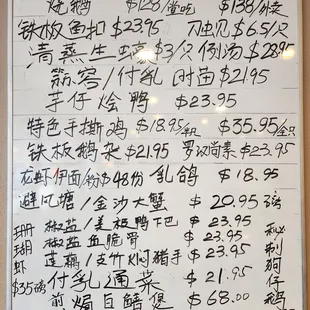 烧鹅 $128/堂吃 $138/外卖
铁板鱼扣 $23.95 刀虫见 $6.5/只
清蒸生蚝 $3/只 例汤 $28.95
蒜蓉/付乳 时苗 $21.95
芋仔烩鸭 $23.95
特色手撕鸡 $18.95/半只 $35.95/全只
铁板鹅杂 $21.95 罗汉尚素 $23.95
花虾伊面/粉 $48份 乳鸽 $18.95
避风塘/金沙大蟹 $20.95磅
椒盐/美极鸭下巴 $23.95
椒盐鱼脆骨 $23.95
莲藕/支竹炆猪手 $23.95
付乳通菜 $21.95
煎焗白鳝煲 $68.00
珊瑚虾 $35磅
秘制狗仔鹅